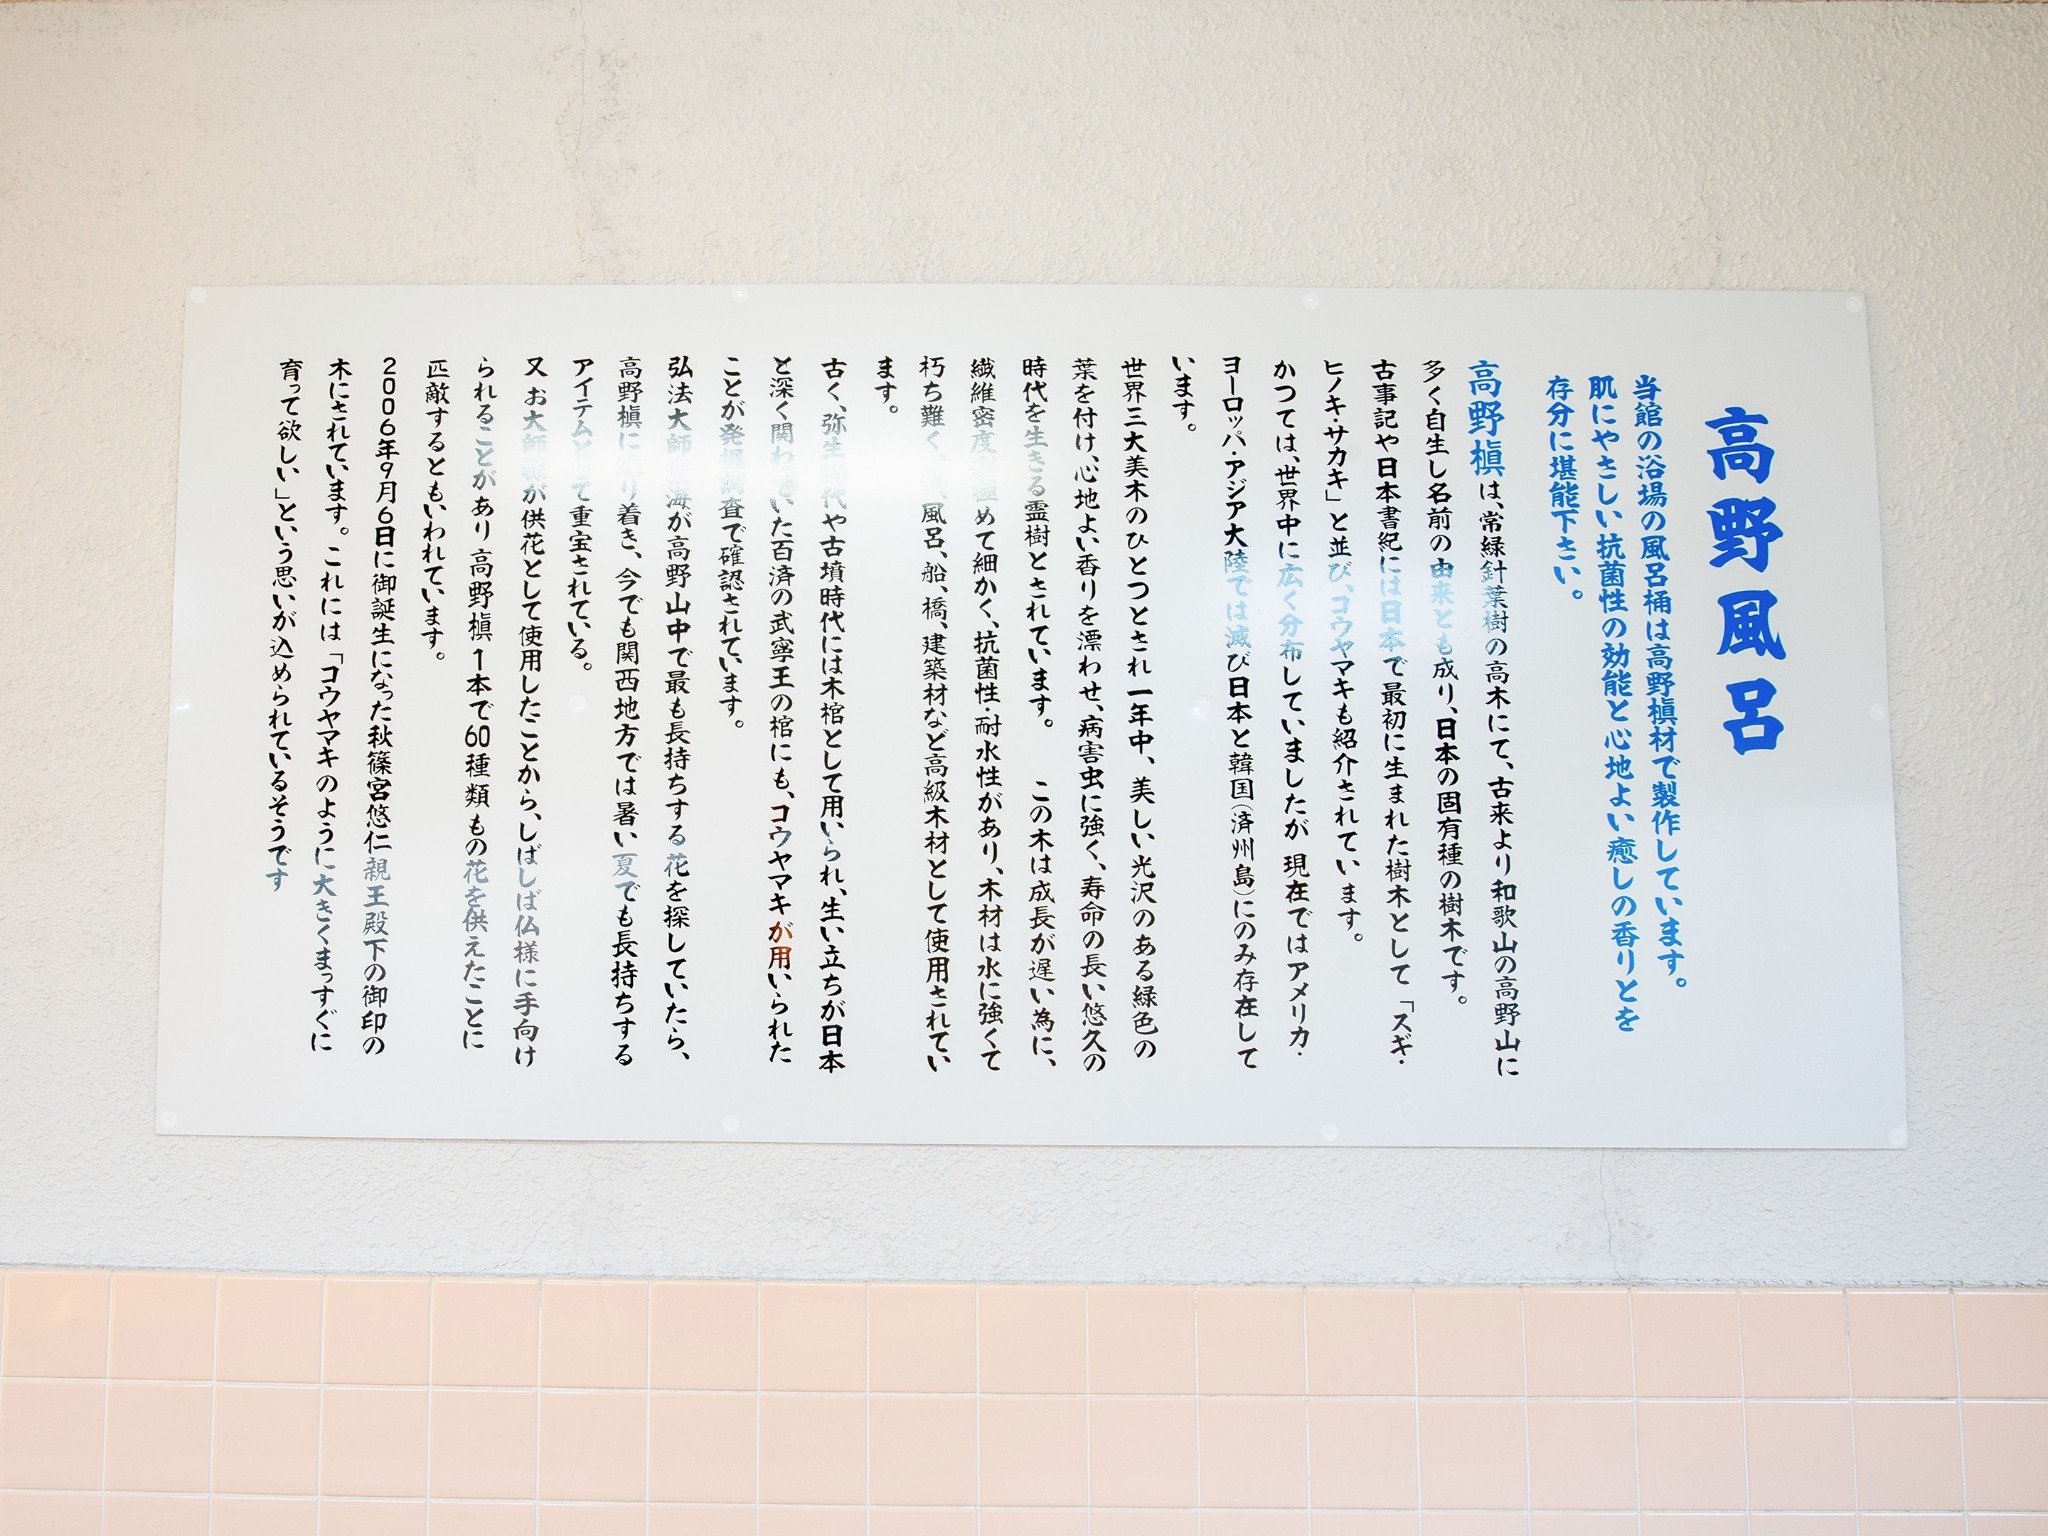 高野風呂
当館の浴場の風呂桶は高野槇材で製作しています。
肌にやさしい抗菌性の効能と心地よい癒しの香りとを
存分に堪能下さい。
高野槇は、常緑針葉樹の高木にて、古来より和歌山の高野山に
多く自生し名前の由来とも成り、日本の固有種の樹木です。
古事記や日本書紀には日本で最初に生まれた樹木として「スギ・
ヒノキ・サカキ」と並び、コウヤマキも紹介されています。
かつては、世界中に広く分布していましたが 現在ではアメリカ・
ヨーロッパ・アジア大陸では滅び日本と韓国(済州島)にのみ存在して
います。
世界三大美木のひとつとされ 一年中、美しい光沢のある緑色の
葉を付け、心地よい香りを漂わせ、病害虫に強く、寿命の長い悠久の
時代を生きる霊樹とされています。 この木は成長が遅い為に、
繊維密度が極めて細かく、抗菌性・耐水性があり、木材は水に強くて
朽ち難く、風呂、船、橋、建築材など高級木材として使用されてい
ます。
古く、弥生時代や古墳時代には木棺として用いられ、生い立ちが日本
と深く関わっていた百済の武寧王の棺にも、コウヤマキが用いられた
ことが発掘調査で確認されています。
弘法大師空海が高野山中で最も長持ちする花を探していたら、
高野槇に辿り着き、今でも関西地方では暑い夏でも長持ちする
アイテムとして重宝されている。
又 お大師様が供花として使用したことから、しばしば仏様に手向け
られることがあり 高野槇1本で60種類もの花を供えたことに
匹敵するともいわれています。
2006年9月6日に御誕生になった秋篠宮悠仁親王殿下の御印の
木にされています。これには「コウヤマキのように大きくまっすぐに
育って欲しい」という思いが込められているそうです